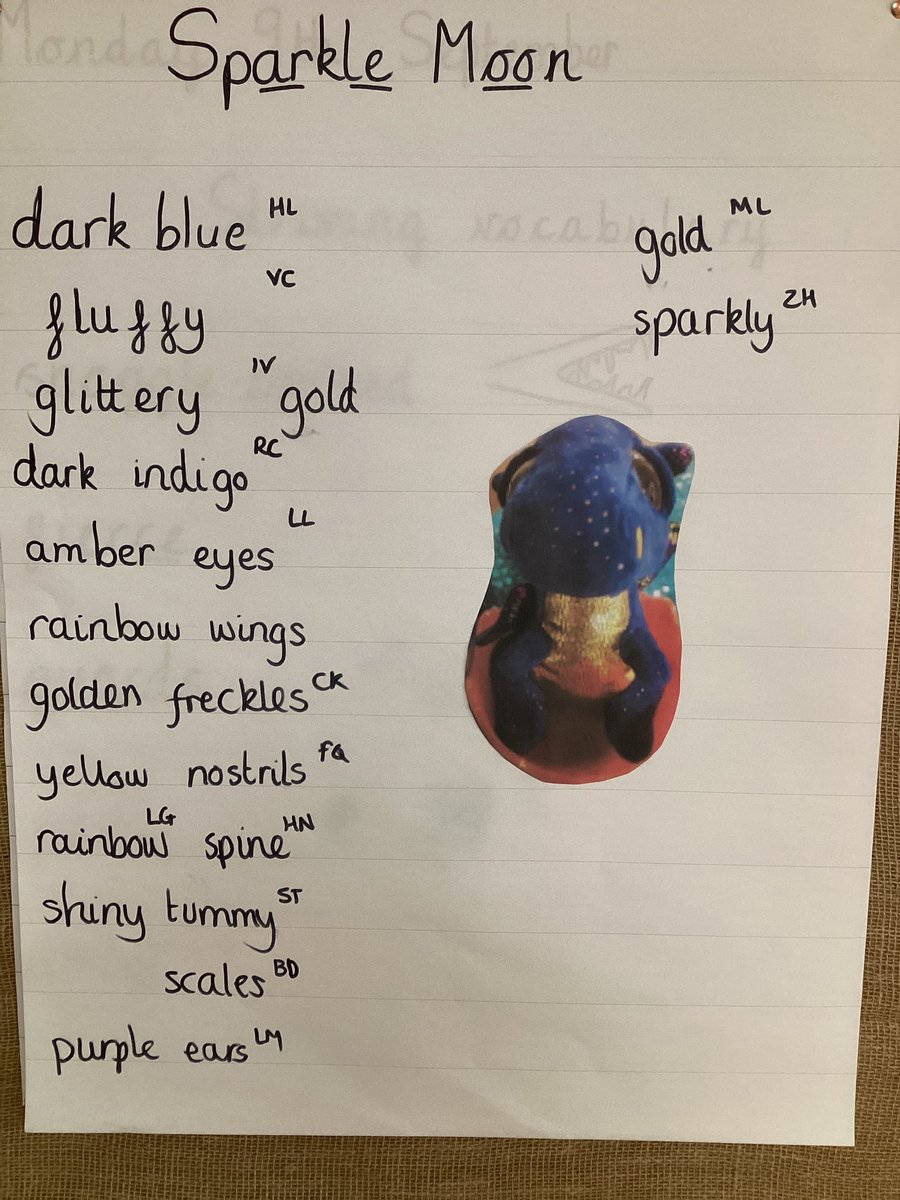 Sparkle Moon
dark blue HL
fluffy VC
glittery IV gold
dark indigo RC
amber eyes LL
rainbow wings
golden freckles CK
yellow nostrils FQ
rainbow LG spine HN
shiny tummy ST
scales BD
purple ears LM
gold ML
sparkly ZH